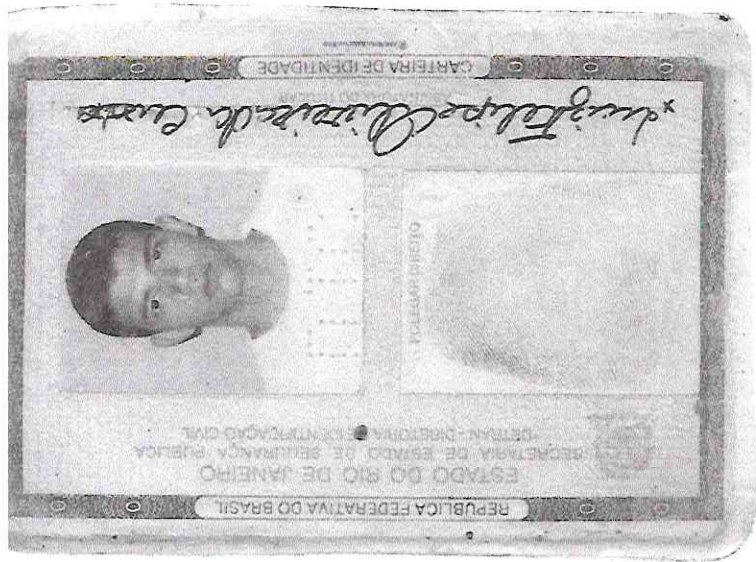 REPUBLICA FEDERATIVA DO BRASIL
ESTADO DO RIO DE JANEIRO
SECRETARIA DE ESTADO DE SEGURANÇA PUBLICA
DETRAN - DIRETORIA DE IDENTIFICAÇÃO CIVIL
POLEGAR DIREITO
x Luiz Felipe Oliveira da Cunha
ASSINATURA DO TITULAR
CARTEIRA DE IDENTIDADE